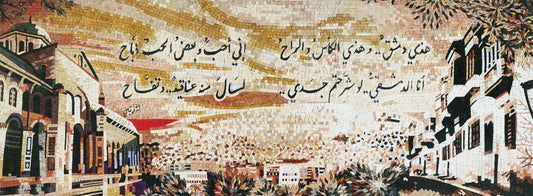 هذي دمشق .. وهذي الكأس والراح إني أحب وبعض الحب ذباح
أنا الدمشقي .. لو شرحتم جسدي .. لسال منه عناقيد وتفاح